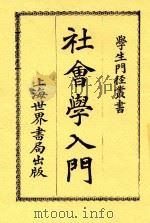 學生門徑叢書
社會學入門
上海世界書局出版